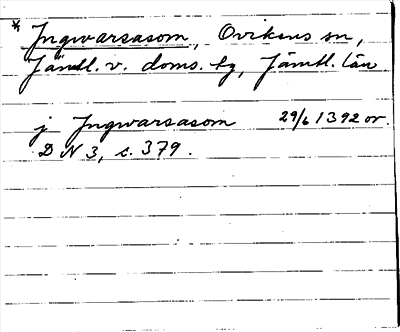 * Jngwarsasom, Ovikens sn,
Jämtl. v. doms. hg, Jämtl. län
j Jngwarsasom 29/6 1392 or.
DN 3, s. 379.